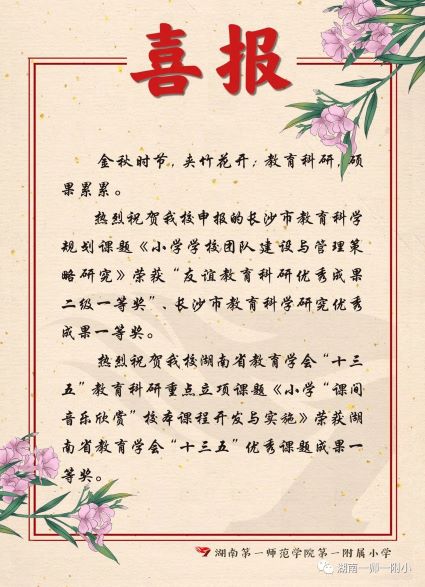 喜报
金秋时节，夹竹花开；教育科研，硕
果累累。
热烈祝贺我校申报的长沙市教育科学
规划课题《小学学校团队建设与管理策
略研究》荣获“友谊教育科研优秀成果
二级一等奖”、长沙市教育科学研究优秀
成果一等奖。
热烈祝贺我校湖南省教育学会“十三
五”教育科研重点立项课题《小学“课间
音乐欣赏”校本课程开发与实施》荣获湖
南省教育学会“十三五”优秀课题成果一
等奖。
湖南第一师范学院第一附属小学
湖南一师一附小